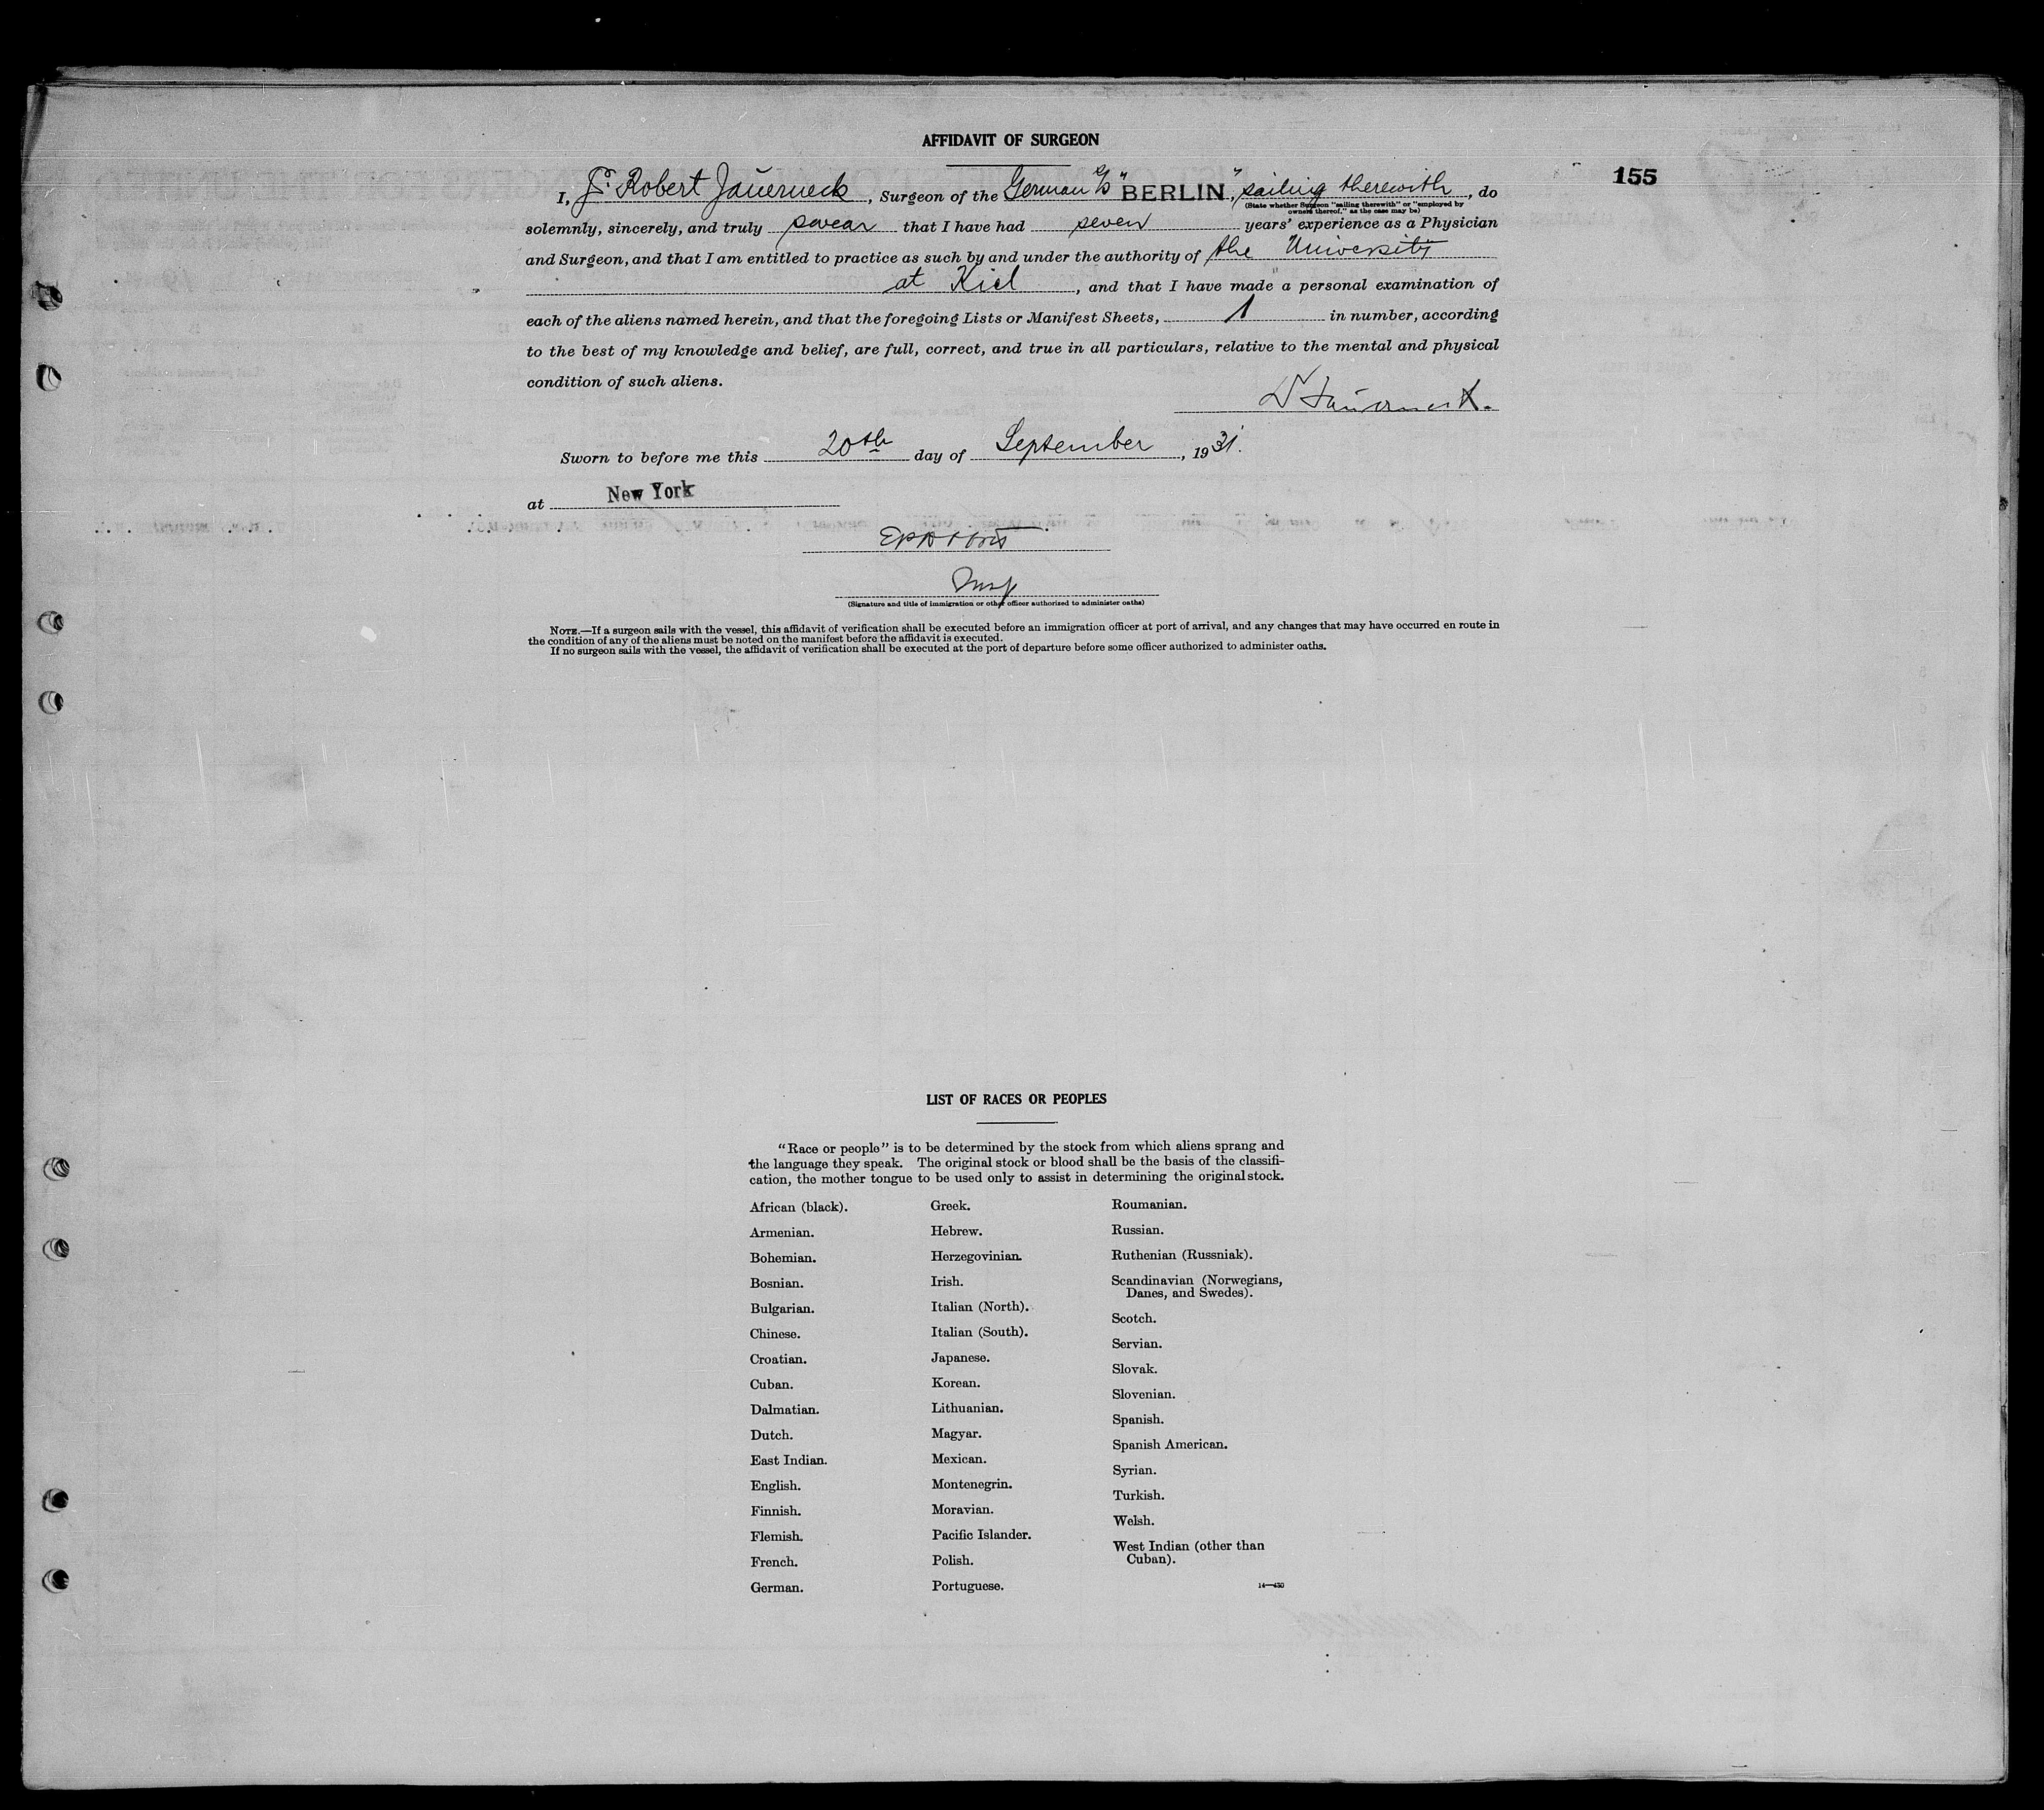 AFFIDAVIT OF SURGEON
155
I, Robert Jauerneck, Surgeon of the German S/S "BERLIN," sailing therewith, do
(State whether Surgeon "sailing therewith" or "employed by
owners thereof," as the case may be)
solemnly, sincerely, and truly swear that I have had seven years' experience as a Physician
and Surgeon, and that I am entitled to practice as such by and under the authority of the University
at Kiel, and that I have made a personal examination of
each of the aliens named herein, and that the foregoing Lists or Manifest Sheets, 1 in number, according
to the best of my knowledge and belief, are full, correct, and true in all particulars, relative to the mental and physical
condition of such aliens.
Sworn to before me this 20th day of September, 1931.
at New York
(Signature and title of immigration or other officer authorized to administer oaths)
NOTE.—If a surgeon sails with the vessel, this affidavit of verification shall be executed before an immigration officer at port of arrival, and any changes that may have occurred en route in
the condition of any of the aliens must be noted on the manifest before the affidavit is executed.
If no surgeon sails with the vessel, the affidavit of verification shall be executed at the port of departure before some officer authorized to administer oaths.
LIST OF RACES OR PEOPLES
"Race or people" is to be determined by the stock from which aliens sprang and
the language they speak. The original stock or blood shall be the basis of the classifi-
cation, the mother tongue to be used only to assist in determining the original stock.
African (black).
Armenian.
Bohemian.
Bosnian.
Bulgarian.
Chinese.
Croatian.
Cuban.
Dalmatian.
Dutch.
East Indian.
English.
Finnish.
Flemish.
French.
German.
Greek.
Hebrew.
Herzegovinian.
Irish.
Italian (North).
Italian (South).
Japanese.
Korean.
Lithuanian.
Magyar.
Mexican.
Montenegrin.
Moravian.
Pacific Islander.
Polish.
Portuguese.
Roumanian.
Russian.
Ruthenian (Russniak).
Scandinavian (Norwegians,
Danes, and Swedes).
Scotch.
Servian.
Slovak.
Slovenian.
Spanish.
Spanish American.
Syrian.
Turkish.
Welsh.
West Indian (other than
Cuban).
14—430